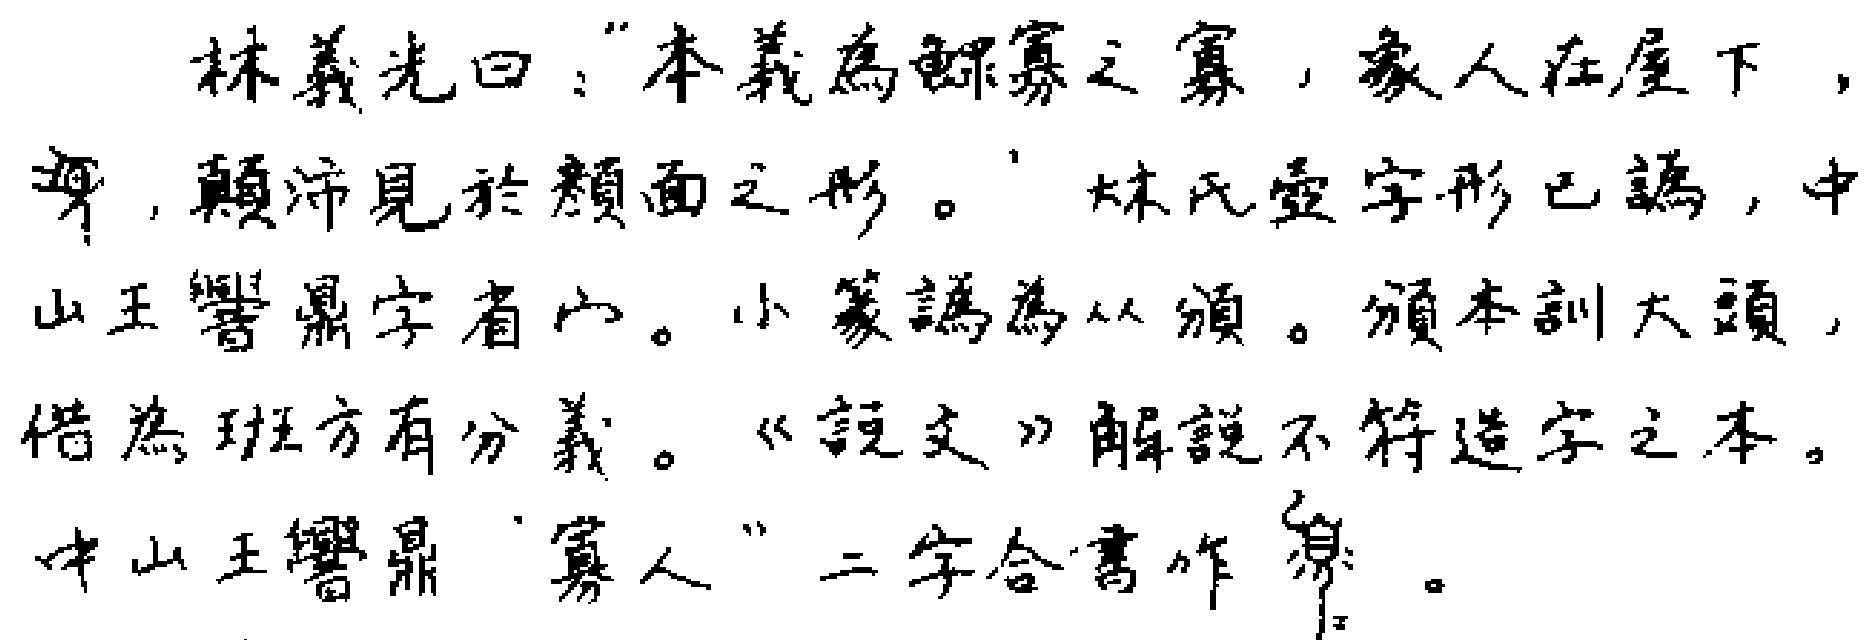 林義光曰：“本義為鰥寡之寡，象人在屋下，
，顛沛見於顏面之形。”㚓氏壺字形已譌，中
山王響鼎字省宀。小篆譌為从頒。頒本訓大頭，
借為班方有分義。《說文》解說不符造字之本。
中山王響鼎“寡人”二字合書作。